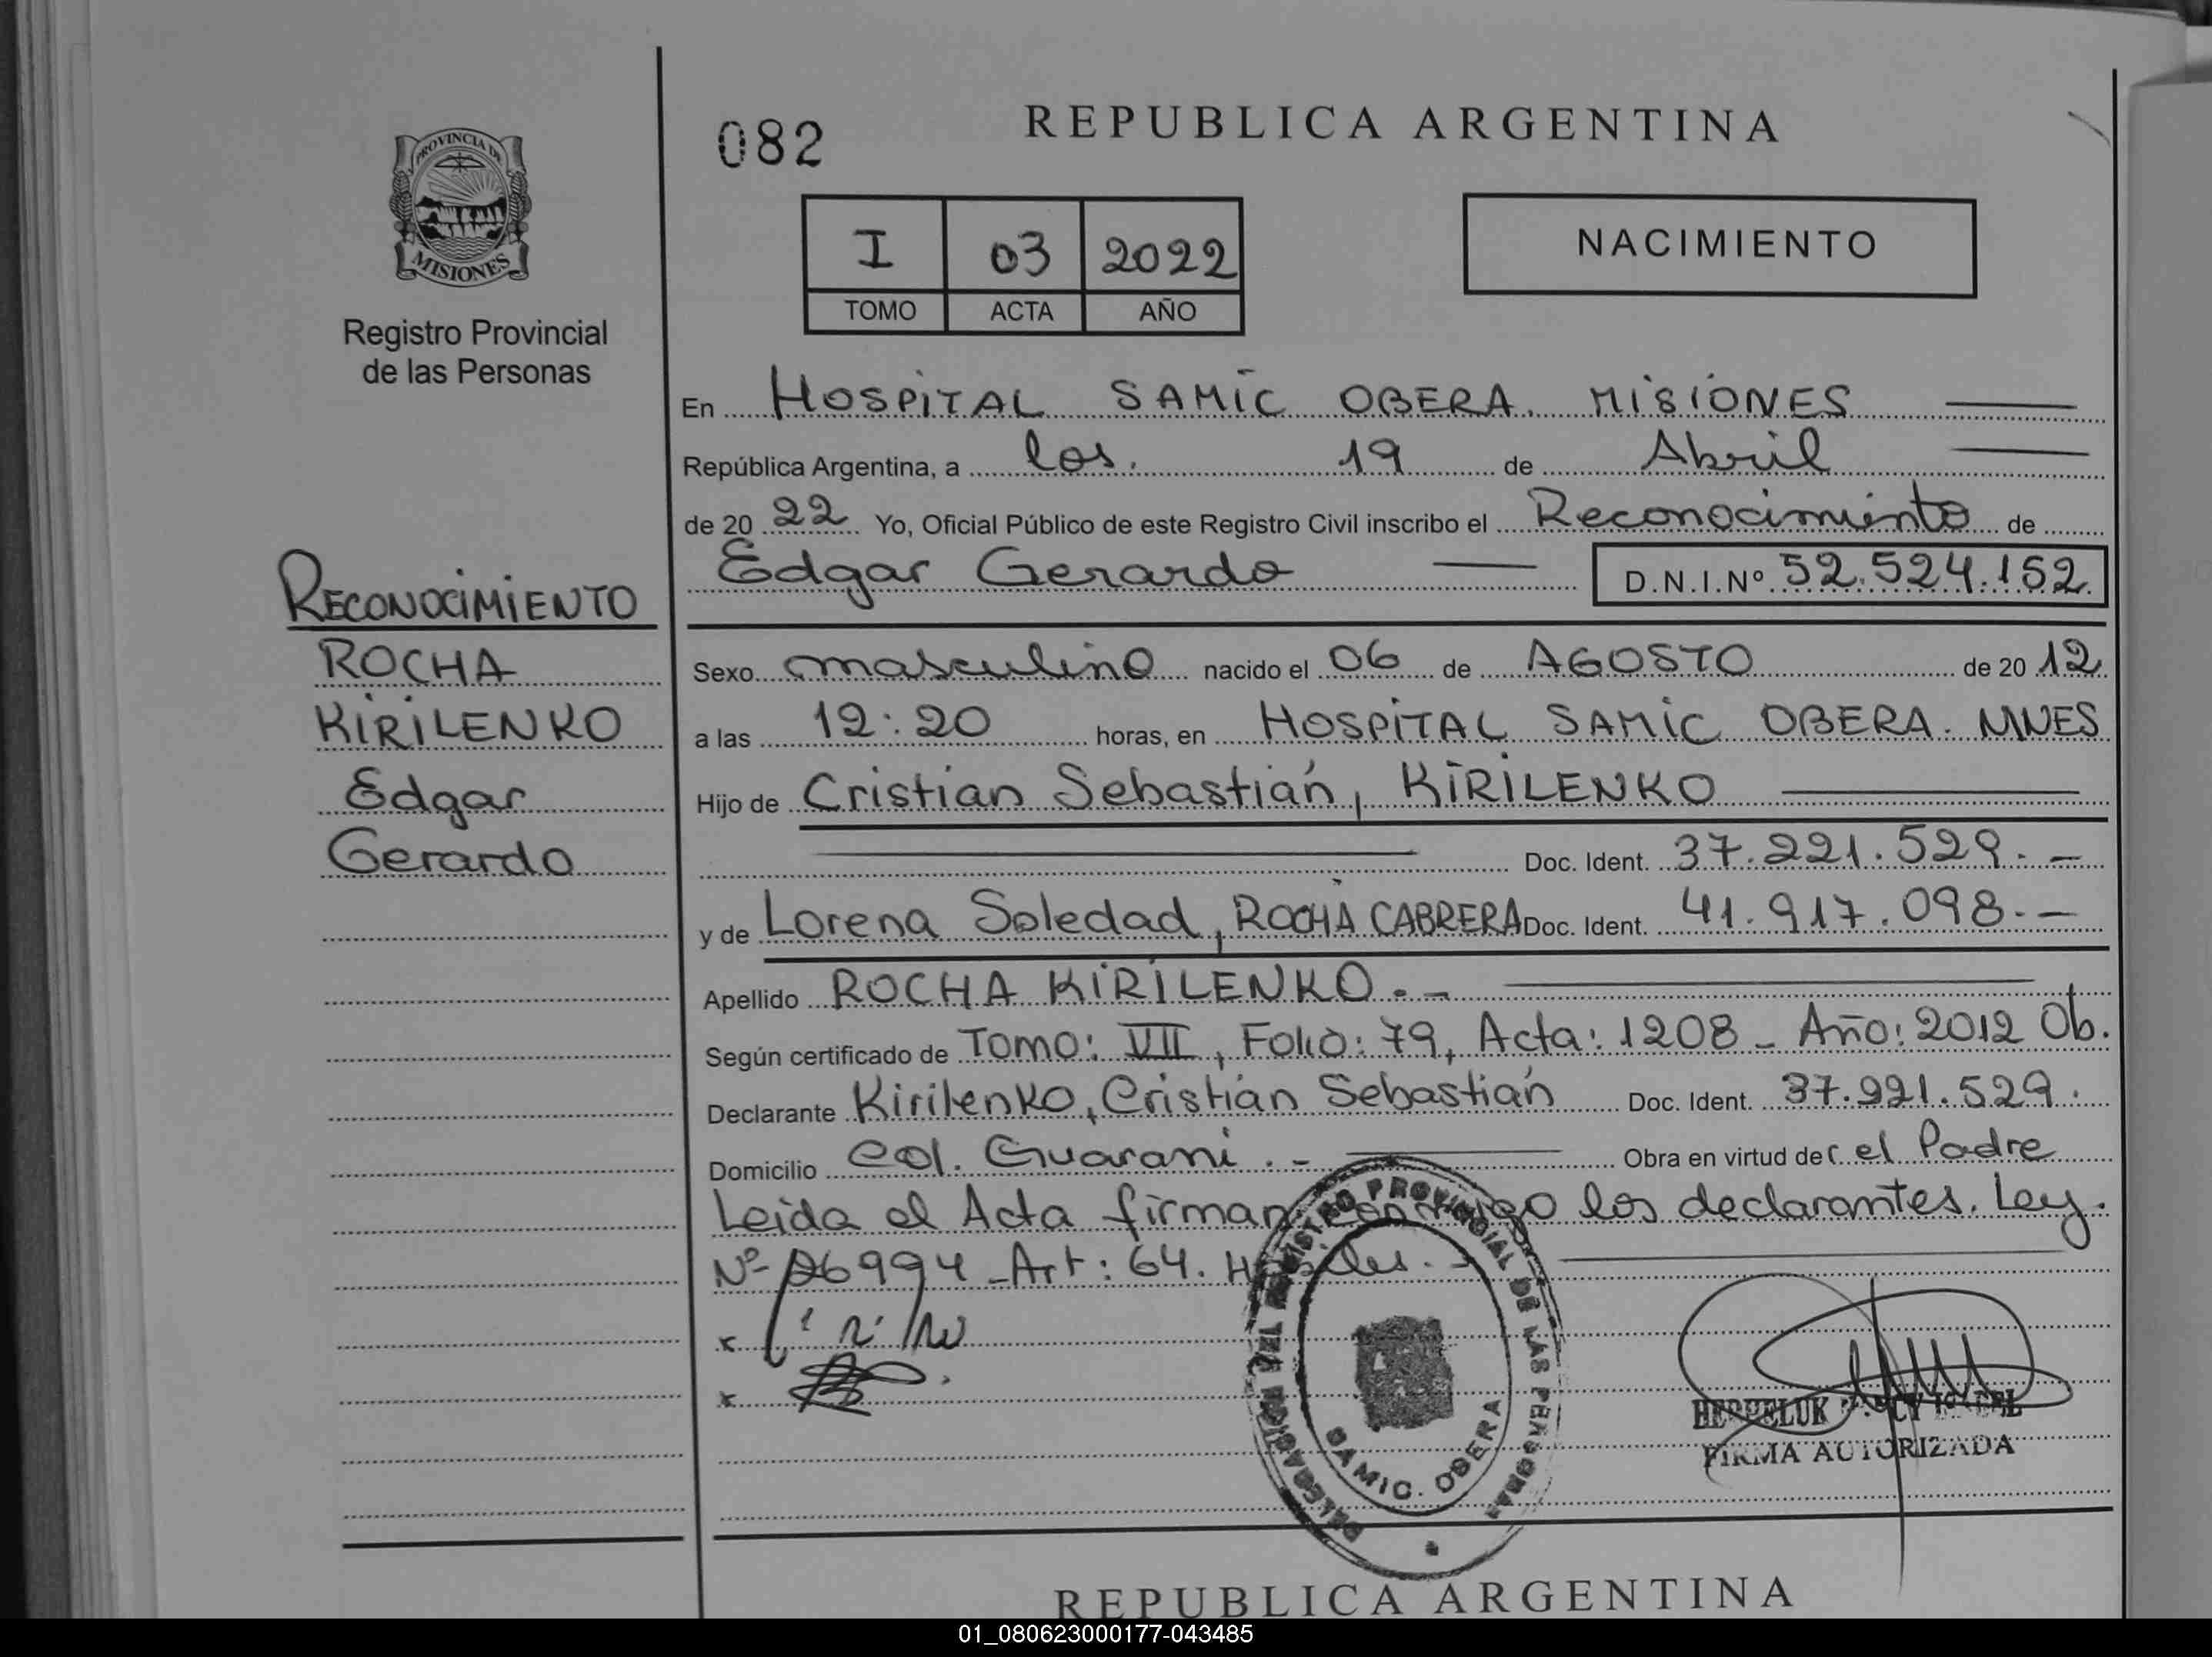 PROVINCIA DE
MISIONES
Registro Provincial
de las Personas
082
REPUBLICA ARGENTINA
I 03 2022
TOMO ACTA AÑO
NACIMIENTO
En HOSPITAL SAMIC OBERA. MISIONES
República Argentina, a los. 19 de Abril
de 20 22 Yo, Oficial Público de este Registro Civil inscribo el Reconocimiento de
Edgar Gerardo D.N.I.Nº 52.524.152.
RECONOCIMIENTO
ROCHA
KIRILENKO
Edgar
Gerardo
Sexo masculino nacido el 06 de AGOSTO de 20 12
a las 12:20 horas, en HOSPITAL SAMIC OBERA. MNES
Hijo de Cristian Sebastián, KIRILENKO
Doc. Ident. 37.221.529.-
y de Lorena Soledad, ROCHA CABRERA Doc. Ident. 41.917.098.-
Apellido ROCHA KIRILENKO.-
Según certificado de Tomo: VII, Folio: 79, Acta: 1208 - Año: 2012 Ob.
Declarante Kirilenko, Cristián Sebastián Doc. Ident. 37.221.529.
Domicilio Col. Guarani.- Obra en virtud de el Padre
Leida el Acta firman conmigo los declarantes. Ley.
Nº 26994 - Art: 64.
REGISTRO PROVINCIAL DE LAS PERSONAS
SAMIC. OBERA
FIRMA AUTORIZADA
REPUBLICA ARGENTINA
01_080623000177-043485